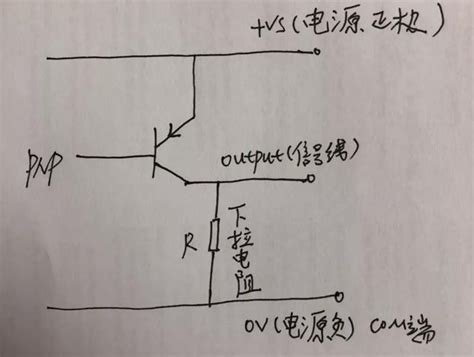 +VS(电源正极)
output(信号线)
PNP
R
下拉电阻
0V(电源负) COM端